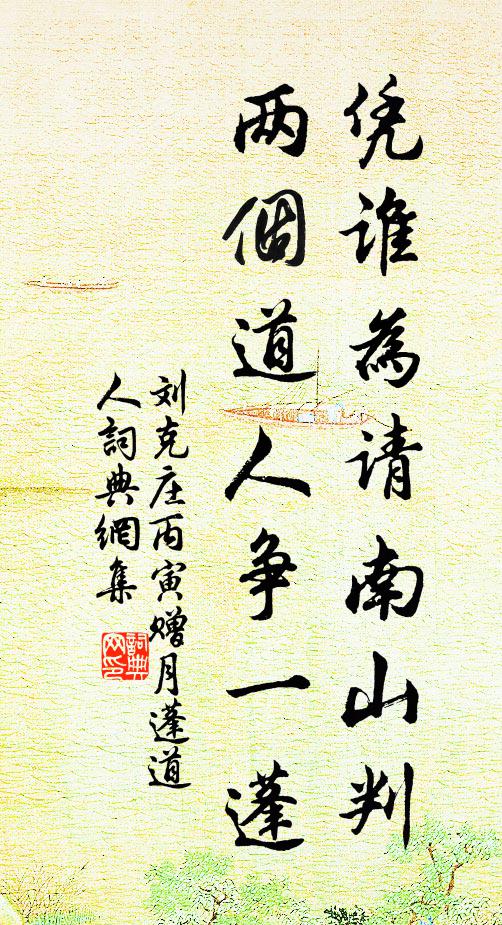 凭谁為请南山判
两個道人争一蓬
刘克庄丙寅赠月蓬道
人詞典網集
詞典网印